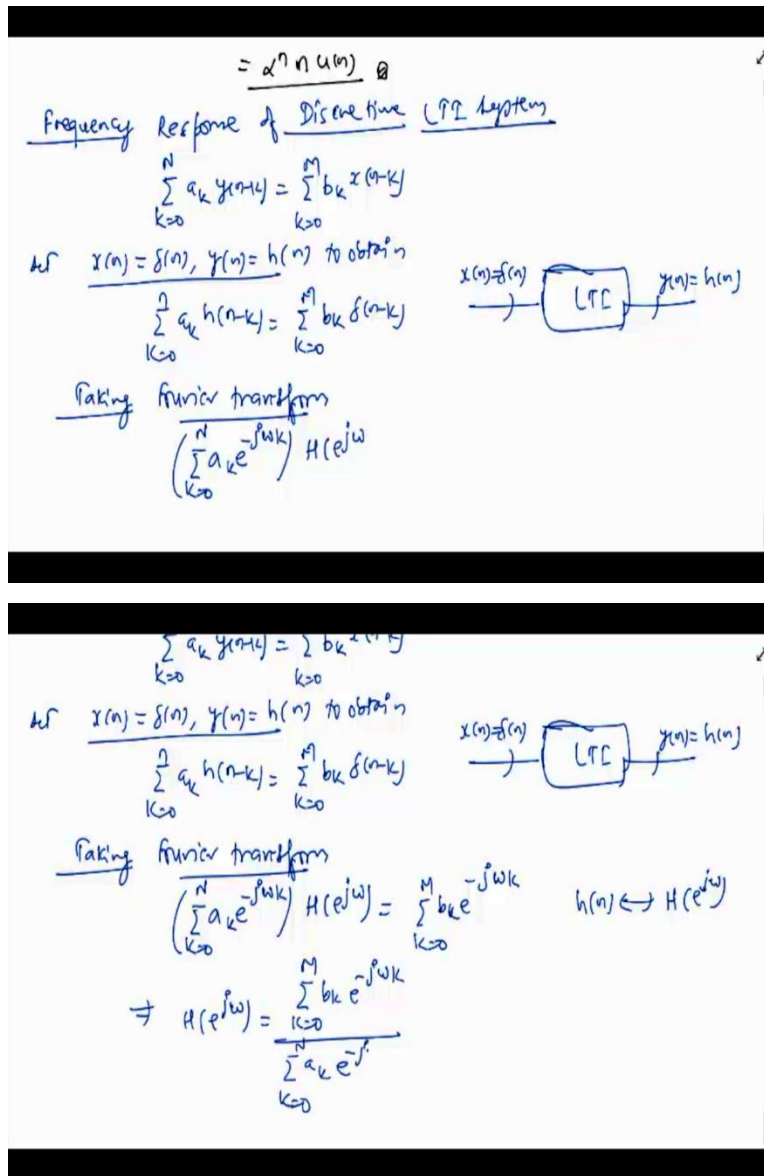 = αⁿ n u(n)
Frequency Response of Discrete time LTI System
∑_{k=0}^{N} a_k y(n-k) = ∑_{k=0}^{M} b_k x(n-k)
x(n) = δ(n), y(n) = h(n) to obtain
x(n)=δ(n) LTI y(n)= h(n)
∑_{k=0}^{n} a_k h(n-k) = ∑_{k=0}^{M} b_k δ(n-k)
Taking Fourier transform
(∑_{k=0}^{N} a_k e^{-jωk}) H(e^{jω}
∑_{k=0} a_k y(n-k) = ∑_{k=0} b_k x(n-k)
x(n) = δ(n), y(n) = h(n) to obtain
x(n)=δ(n) LTI y(n)= h(n)
∑_{k=0}^{n} a_k h(n-k) = ∑_{k=0}^{M} b_k δ(n-k)
Taking Fourier transform
(∑_{k=0}^{N} a_k e^{-jωk}) H(e^{jω}) = ∑_{k=0}^{M} b_k e^{-jωk} h(n) ↔ H(e^{jω})
⇒ H(e^{jω}) = ∑_{k=0}^{M} b_k e^{-jωk}
∑_{k=0}^{N} a_k e^{-j